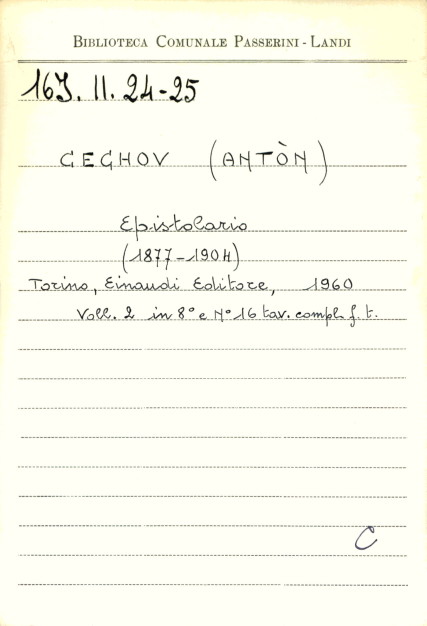 BIBLIOTECA COMUNALE PASSERINI - LANDI
16J. II. 24-25
CECHOV (ANTÒN)
Epistolario
(1877-1904)
Torino, Einaudi Editore, 1960
Voll. 2 in 8° e N° 16 tav. compl. f. t.
C